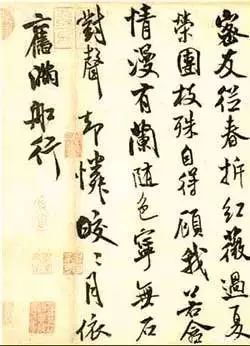 密友從春拆紅薇過夏
榮團枝殊自得顧我若含
情漫有蘭隨色寧無石
對聲却憐皎〻月依
舊滿船行